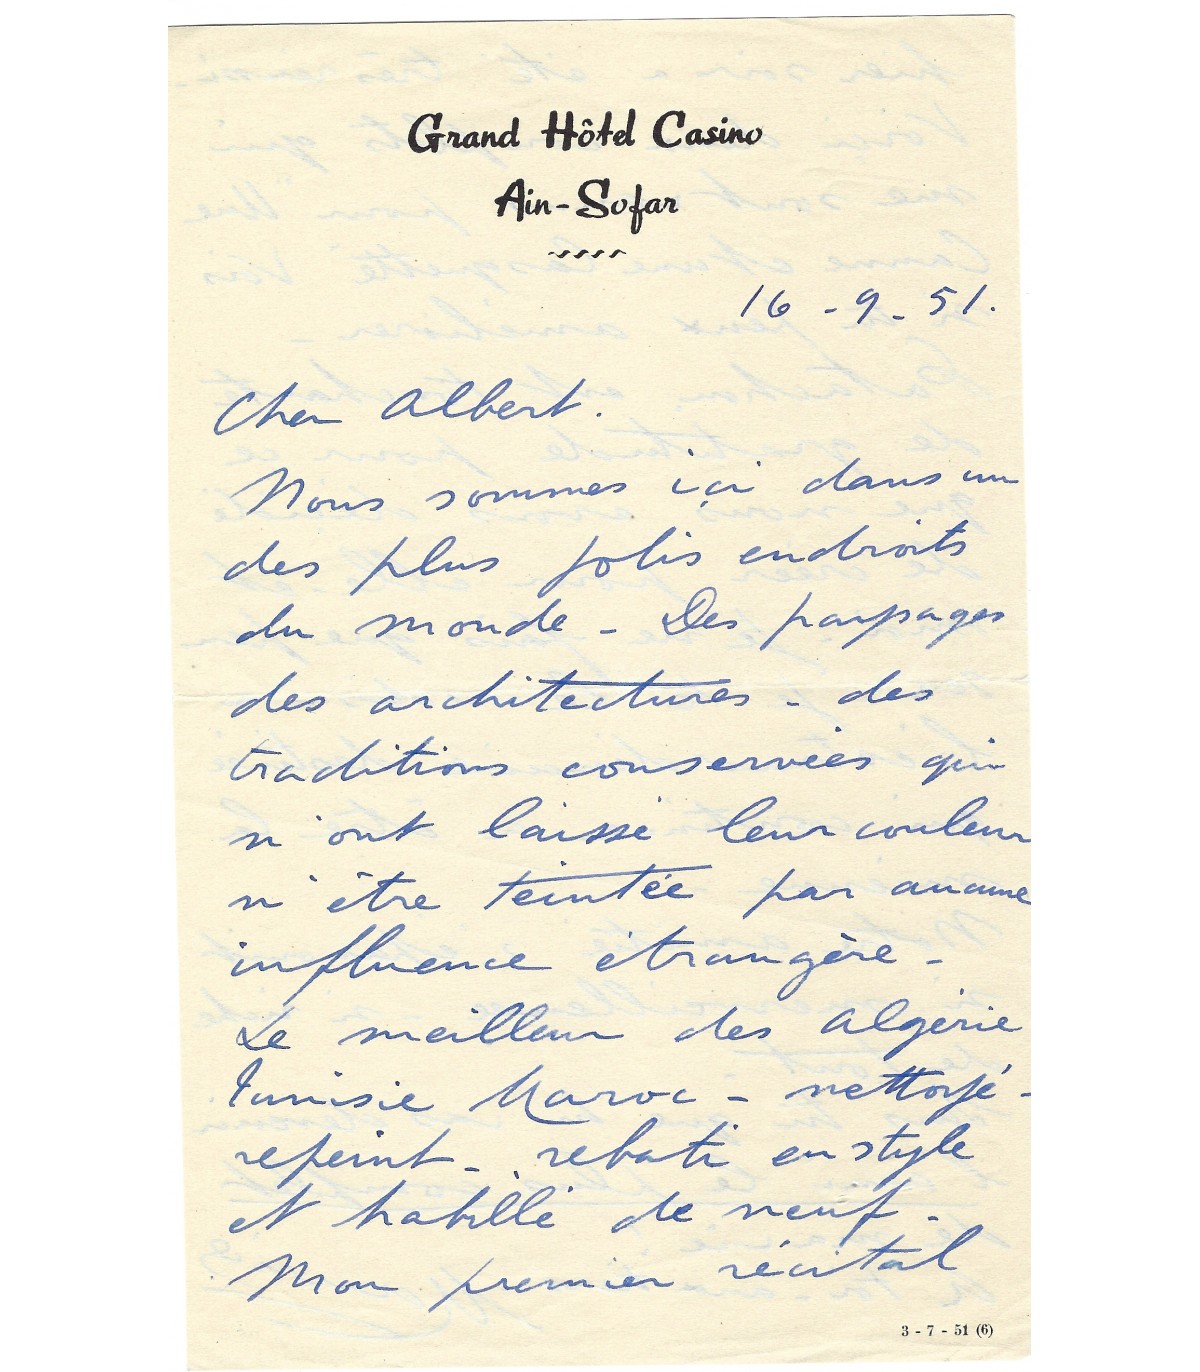 Grand Hôtel Casino
Ain-Sofar
16 - 9 - 51.
Cher Albert.
Nous sommes ici dans un
des plus jolis endroits
du monde - Des paysages
des architectures - des
traditions conservées qui
n'ont laissé leur couleur
n'être teintée par aucune
influence étrangère -
Le meilleur des Algérie
Tunisie Maroc - nettoyé -
repeint - rebati en style
et habillé de neuf -
Mon premier récital
3 - 7 - 51 (6)